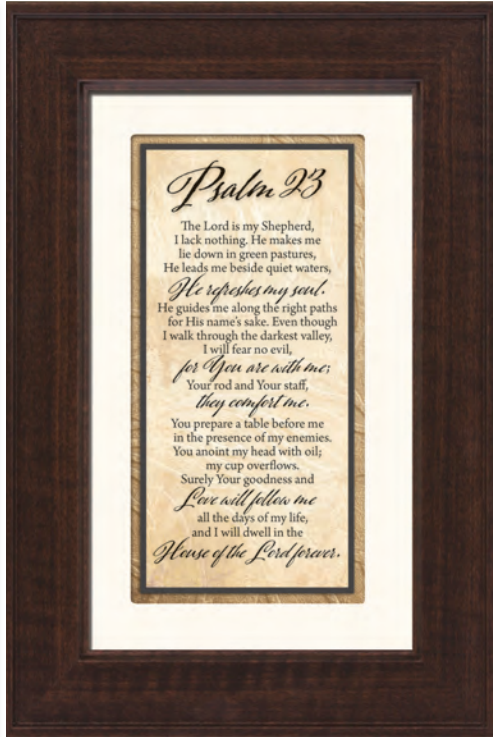 Psalm 23
The Lord is my Shepherd,
I lack nothing. He makes me
lie down in green pastures,
He leads me beside quiet waters,
He refreshes my soul.
He guides me along the right paths
for His name's sake. Even though
I walk through the darkest valley,
I will fear no evil,
for You are with me;
Your rod and Your staff,
they comfort me.
You prepare a table before me
in the presence of my enemies.
You anoint my head with oil;
my cup overflows.
Surely Your goodness and
Love will follow me
all the days of my life,
and I will dwell in the
House of the Lord forever.